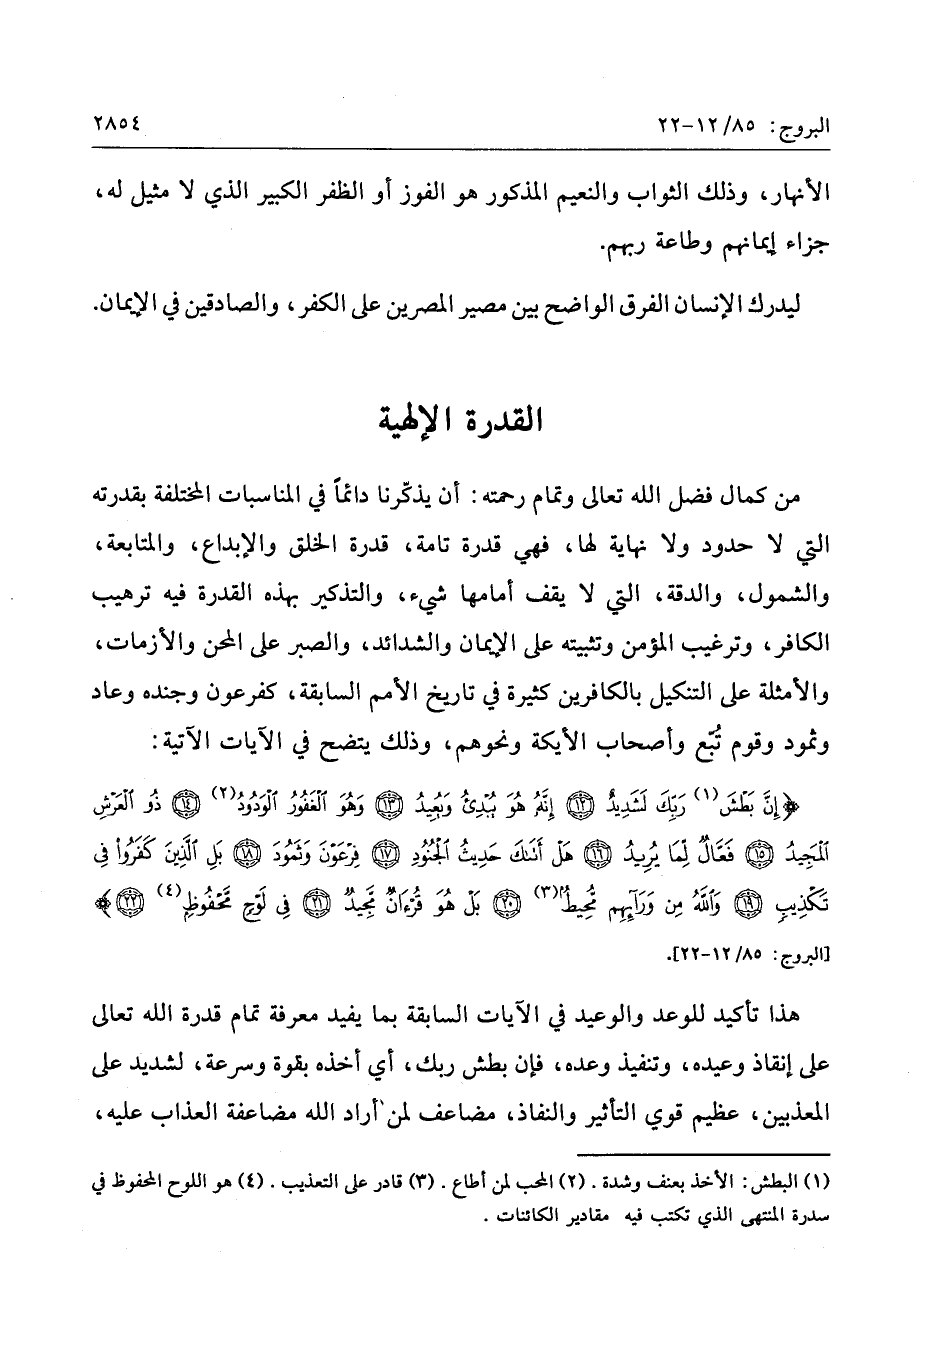 البروج: ٨٥/ ١٢-٢٢
٢٨٥٤
الأنهار، وذلك الثواب والنعيم المذكور هو الفوز أو الظفر الكبير الذي لا مثيل له،
جزاء إيمانهم وطاعة ربهم.
ليدرك الإنسان الفرق الواضح بين مصير المصرين على الكفر، والصادقين في الإيمان.
القدرة الإلهية
من كمال فضل الله تعالى وتمام رحمته: أن يذكّرنا دائماً في المناسبات المختلفة بقدرته
التي لا حدود ولا نهاية لها، فهي قدرة تامة، قدرة الخلق والإبداع، والمتابعة،
والشمول، والدقة، التي لا يقف أمامها شيء، والتذكير بهذه القدرة فيه ترهيب
الكافر، وترغيب المؤمن وتثبيته على الإيمان والشدائد، والصبر على المحن والأزمات،
والأمثلة على التنكيل بالكافرين كثيرة في تاريخ الأمم السابقة، كفرعون وجنده وعاد
وثمود وقوم تُبّع وأصحاب الأيكة ونحوهم، وذلك يتضح في الآيات الآتية:
﴿إِنَّ بَطْشَ(١) رَبِّكَ لَشَدِيدٌ ١٢ إِنَّهُ هُوَ يُبْدِئُ وَيُعِيدُ ١٣ وَهُوَ ٱلْغَفُورُ ٱلْوَدُودُ(٢) ١٤ ذُو ٱلْعَرْشِ
ٱلْمَجِيدُ ١٥ فَعَّالٌ لِّمَا يُرِيدُ ١٦ هَلْ أَتَىٰكَ حَدِيثُ ٱلْجُنُودِ ١٧ فِرْعَوْنَ وَثَمُودَ ١٨ بَلِ ٱلَّذِينَ كَفَرُوا۟ فِى
تَكْذِيبٍ ١٩ وَٱللَّهُ مِن وَرَآئِهِم مُّحِيطٌ(٣) ٢٠ بَلْ هُوَ قُرْءَانٌ مَّجِيدٌ ٢١ فِى لَوْحٍ مَّحْفُوظٍ(٤) ٢٢﴾
[البروج: ٨٥/ ١٢-٢٢].
هذا تأكيد للوعد والوعيد في الآيات السابقة بما يفيد معرفة تمام قدرة الله تعالى
على إنقاذ وعيده، وتنفيذ وعده، فإن بطش ربك، أي أخذه بقوة وسرعة، لشديد على
المعذبين، عظيم قوي التأثير والنفاذ، مضاعف لمن أراد الله مضاعفة العذاب عليه،
(١) البطش: الأخذ بعنف وشدة. (٢) المحب لمن أطاع. (٣) قادر على التعذيب. (٤) هو اللوح المحفوظ في
سدرة المنتهى الذي تكتب فيه مقادير الكائنات.